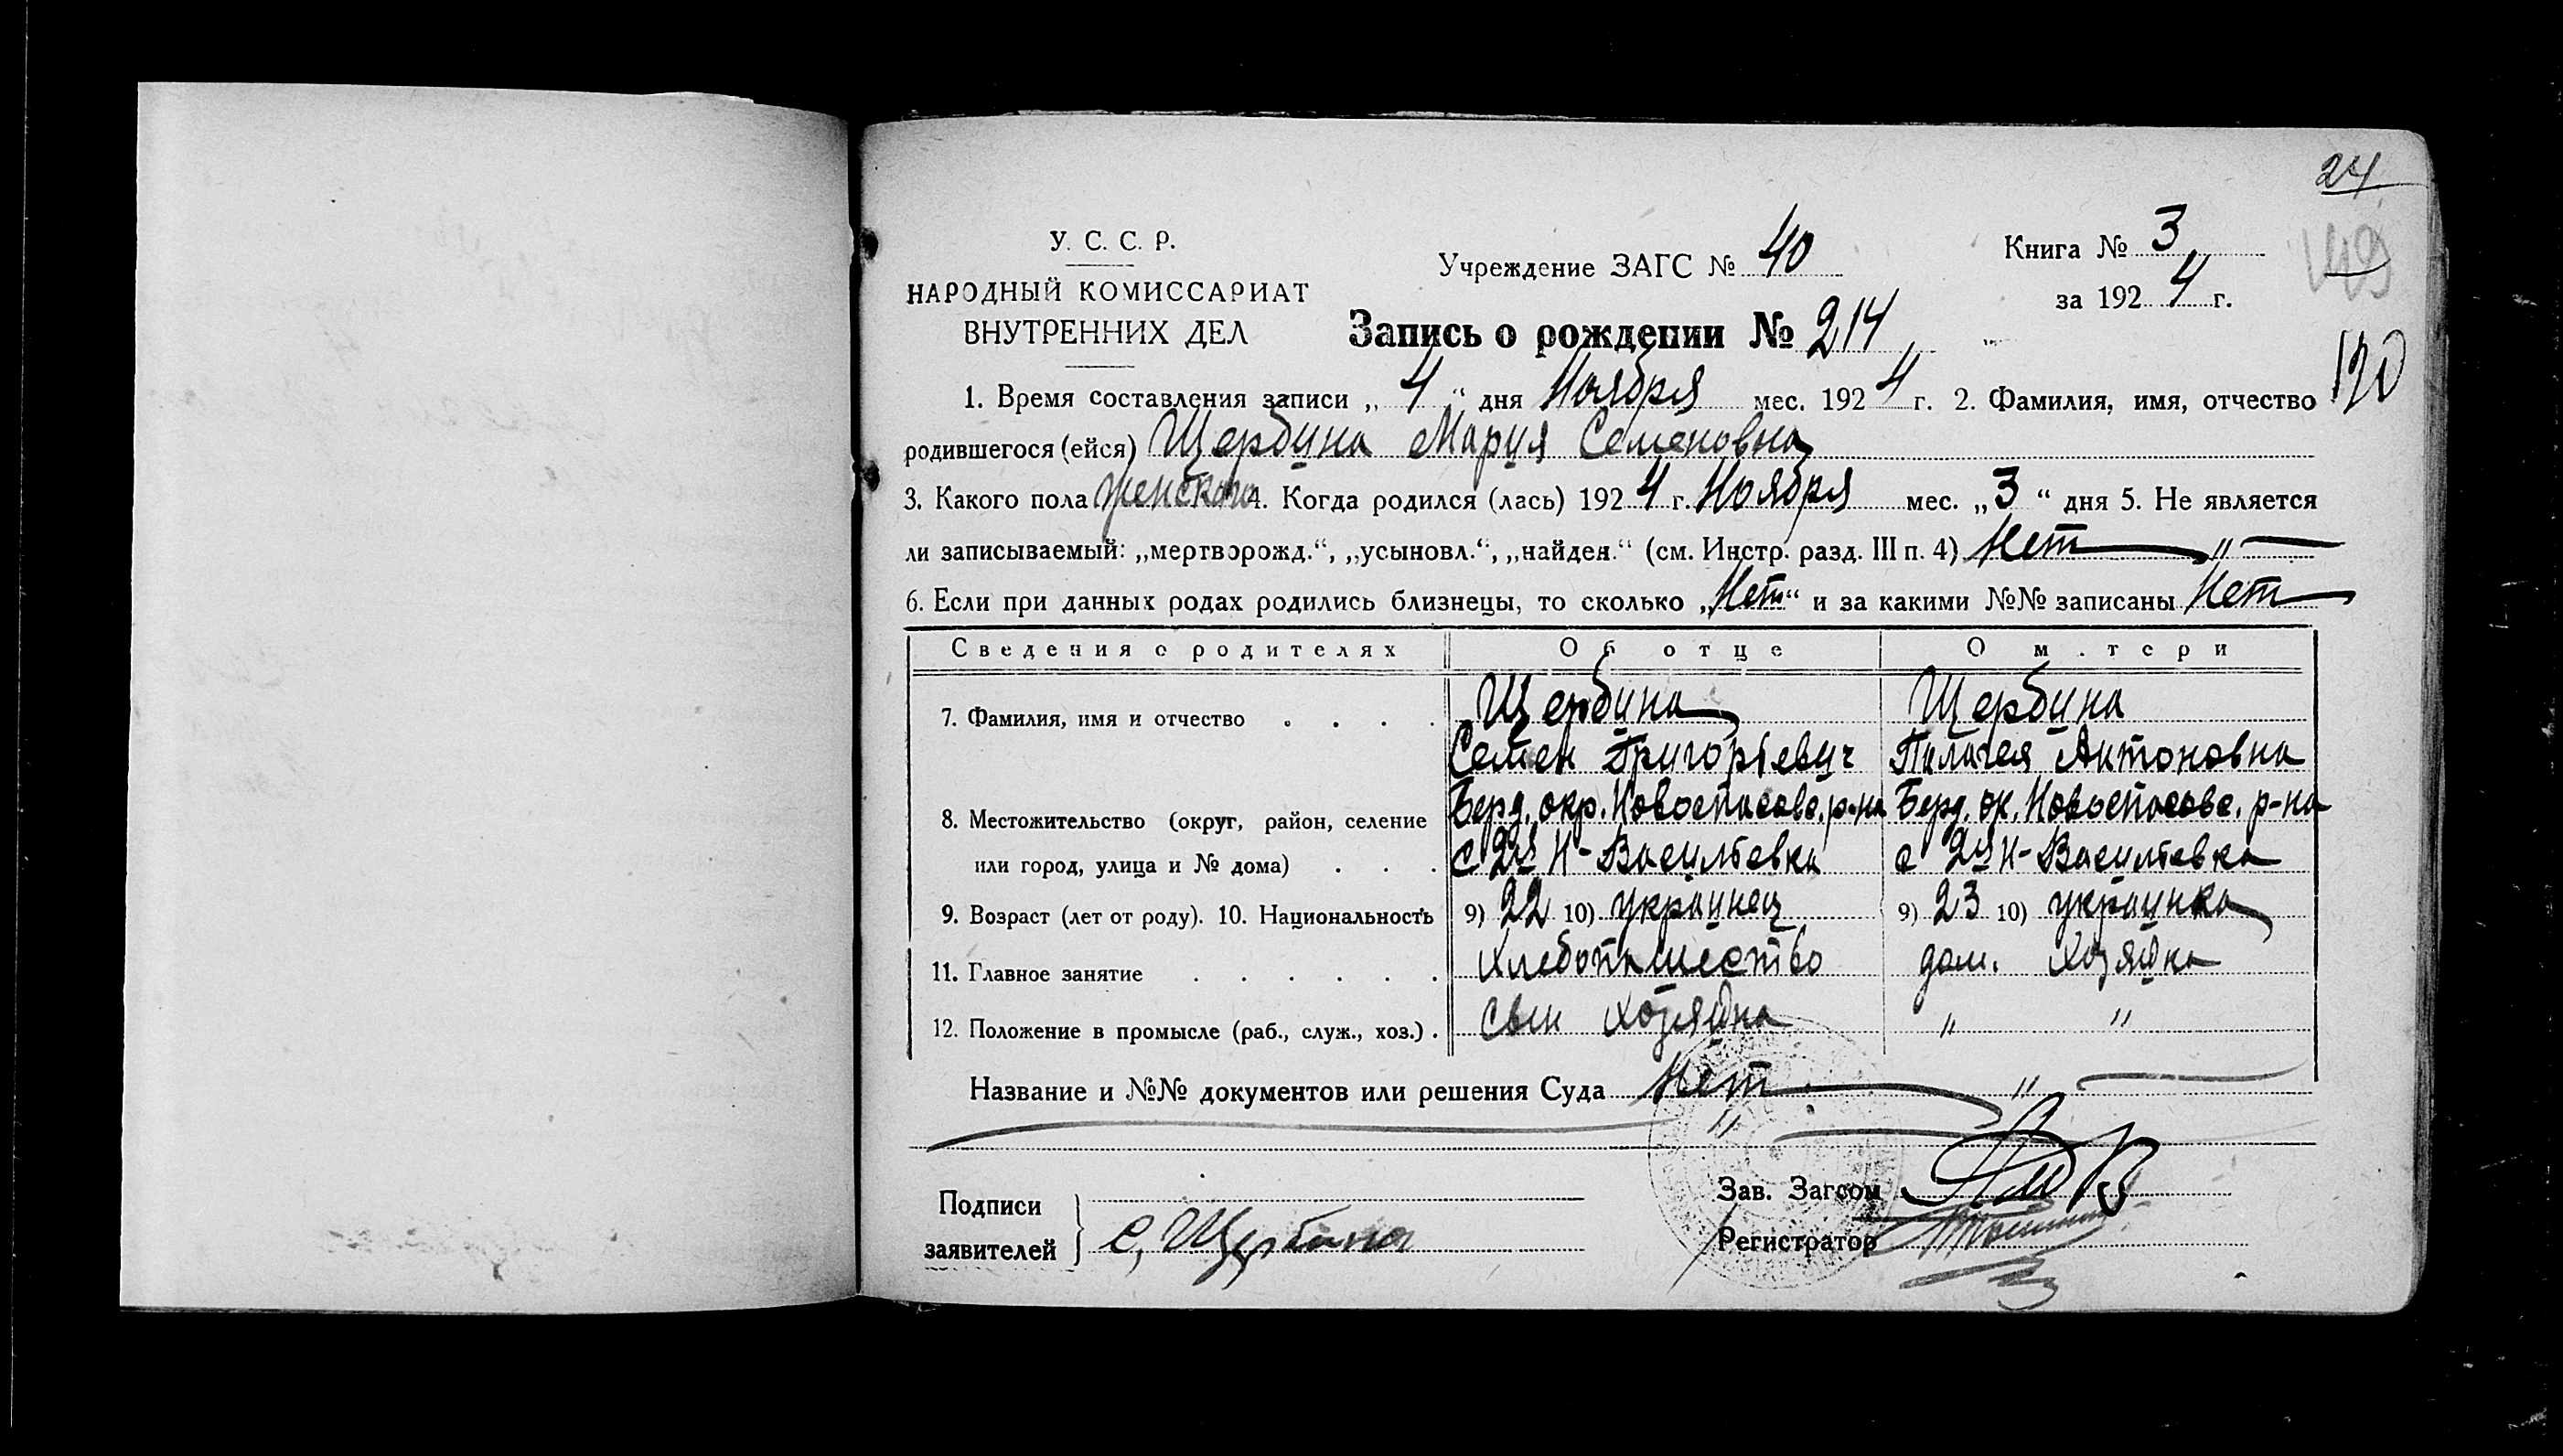 24
У. С. С. Р.
НАРОДНЫЙ КОМИССАРИАТ
ВНУТРЕННИХ ДЕЛ
Учреждение ЗАГС № 40
Книга № 3
149
за 1924 г.
Запись о рождении № 214
170
1. Время составления записи „ 4 “ дня Ноября мес. 1924 г. 2. Фамилия, имя, отчество
родившегося (ейся) Щербина Мария Семеновна
3. Какого пола женского 4. Когда родился (лась) 1924 г. Ноября мес. „ 3 “ дня 5. Не является
ли записываемый: „мертворожд.“, „усыновл.“, „найден.“ (см. Инстр. разд. III п. 4) Нет — „ —
6. Если при данных родах родились близнецы, то сколько „Нет“ и за какими №№ записаны Нет
Сведения о родителях Об отце О м.тери
7. Фамилия, имя и отчество . . . . Щербина Щербина
Семен Григорьевич Пилагея Антоновна
8. Местожительство (округ, район, селение Берд. окр. Новоспасовс. р-на Берд. ок. Новоспасовс. р-на
или город, улица и № дома) . . . с 2я Н-Васильевка с 2я Н-Васильевка
9. Возраст (лет от роду). 10. Национальность 9) 22 10) украинец 9) 23 10) украинка
11. Главное занятие . . . . . . Хлебопашество дом. Хозяйка
12. Положение в промысле (раб., служ., хоз.) . Сын хозяина „ „
Название и №№ документов или решения Суда Нет — „ —
„
Подписи
заявителей
С, Щербина
Зав. Загсом
Регистратор